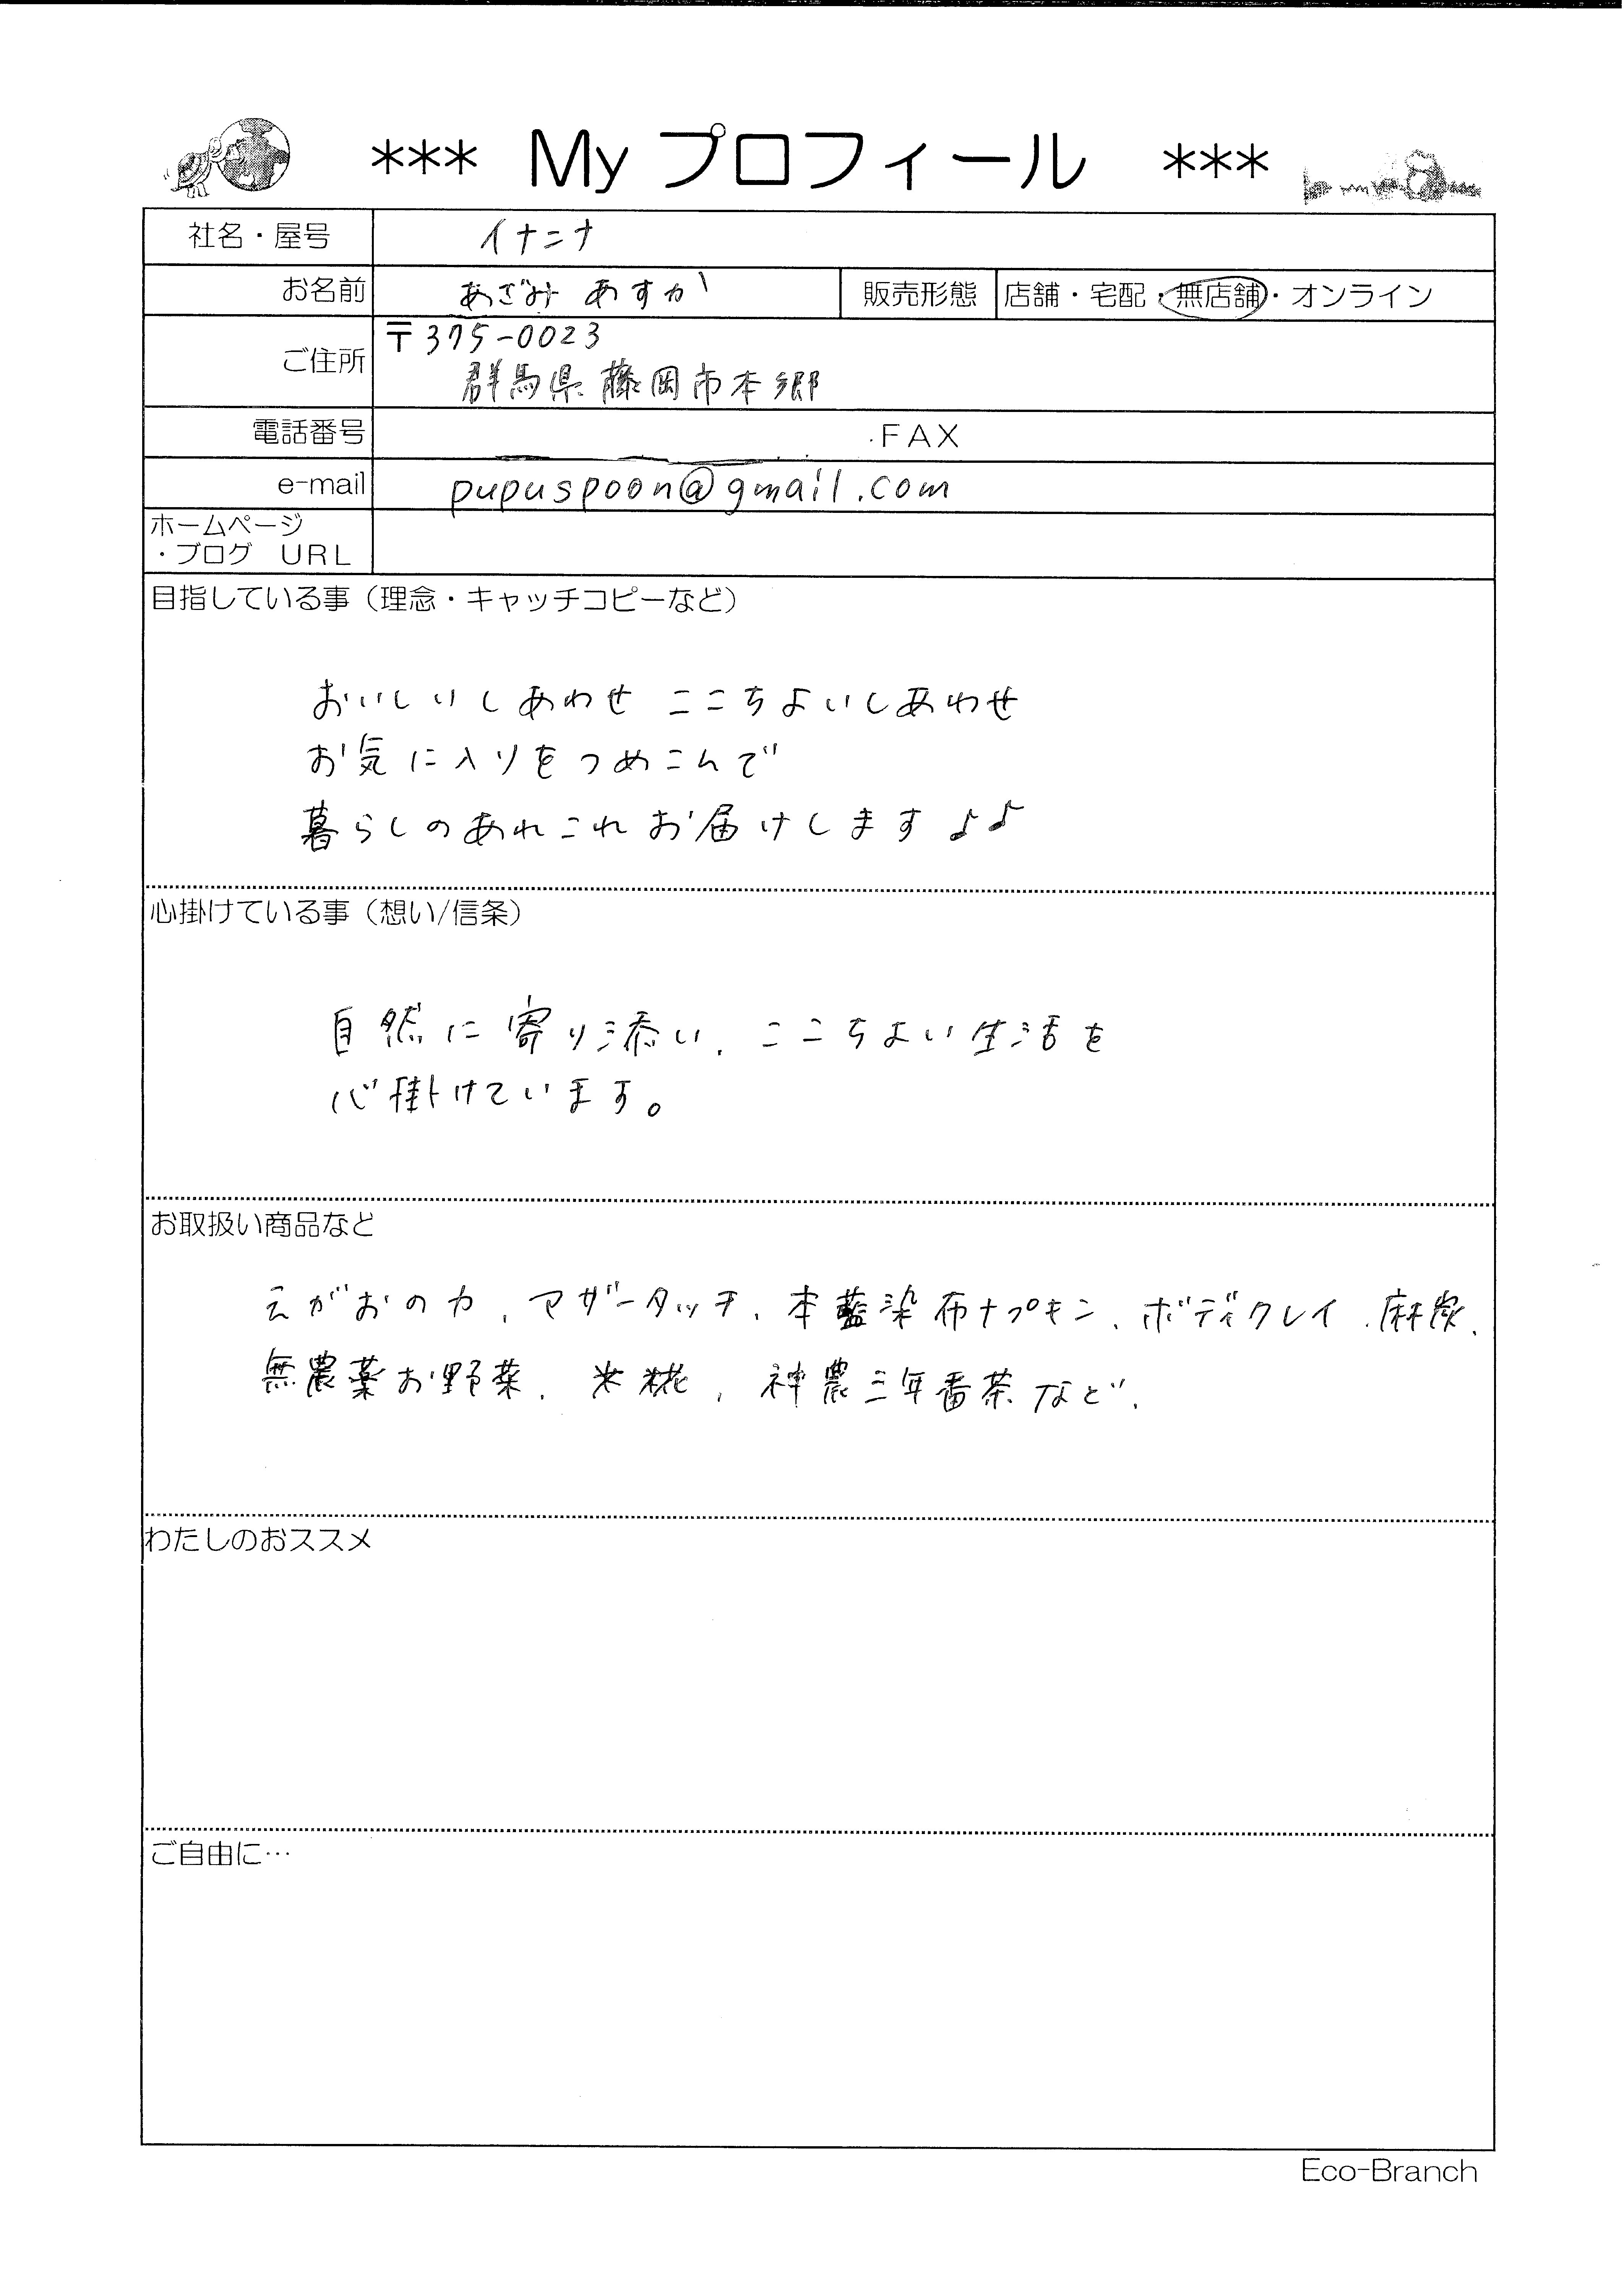 *** My プロフィール ***
社名・屋号 イナニナ
お名前 あざみ あすか 販売形態 店舗・宅配・無店舗・オンライン
〒375-0023
ご住所 群馬県藤岡市本郷
電話番号 FAX
e-mail pupuspoon@gmail.com
ホームページ
・ブログ URL
目指している事（理念・キャッチコピーなど）
おいしいしあわせ ここちよいしあわせ
お気に入りをつめこんで
暮らしのあれこれお届けします♪♪
心掛けている事（想い/信条）
自然に寄り添い、ここちよい生活を
心掛けています。
お取扱い商品など
えがおの力、マザータッチ、本藍染布ナプキン、ボディクレイ、麻炭、
無農薬お野菜、米糀、神農三年番茶など、
わたしのおススメ
ご自由に…
Eco-Branch